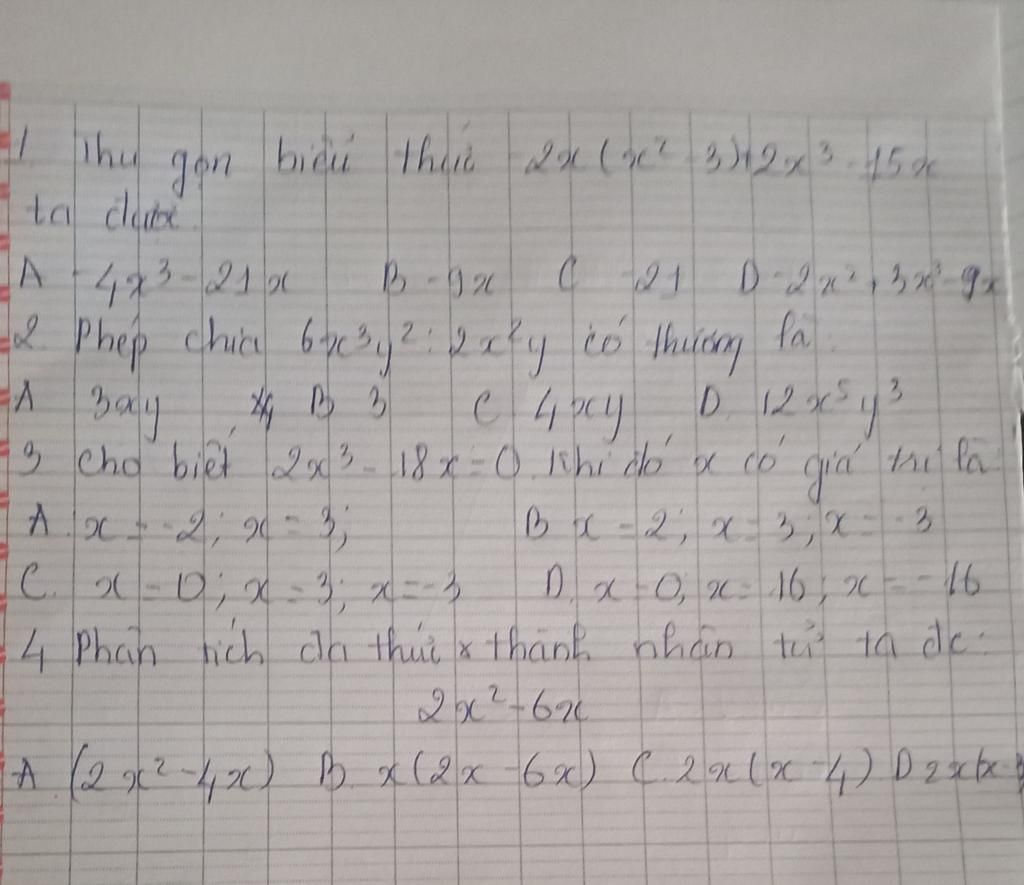 1 Thu gọn biểu thức 2x(x² - 3)+2x³ - 15x
ta được
A -4x³ - 21x B -9x C -21 D -2x² + 3x³ - 9x
2. Phép chia 6x³y² : 2x²y có thương là:
A 3xy B 3 C 4xy D. 12x⁵y³
3 cho biết 2x³ - 18x = 0. Khi đó x có giá trị là
A. x = -2; x = 3; B x = 2; x = 3; x = -3
C. x = 0; x = 3; x = -3 D. x = 0; x = 16; x = -16
4 Phân tích đa thức x thành nhân tử ta đc:
2x² - 6x
A. (2x² - 4x) B. x(2x - 6x) C. 2x(x - 4) D 2x(x -